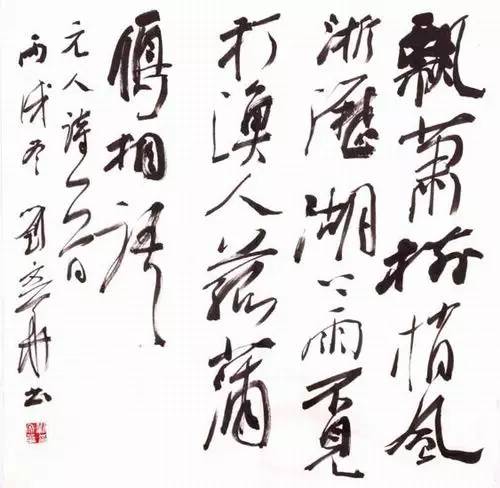 飄蕭樹梢風
淅瀝湖上雨不見
打漁人菰蒲
鴈相語
元人詩一首
丙戌冬劉文華書